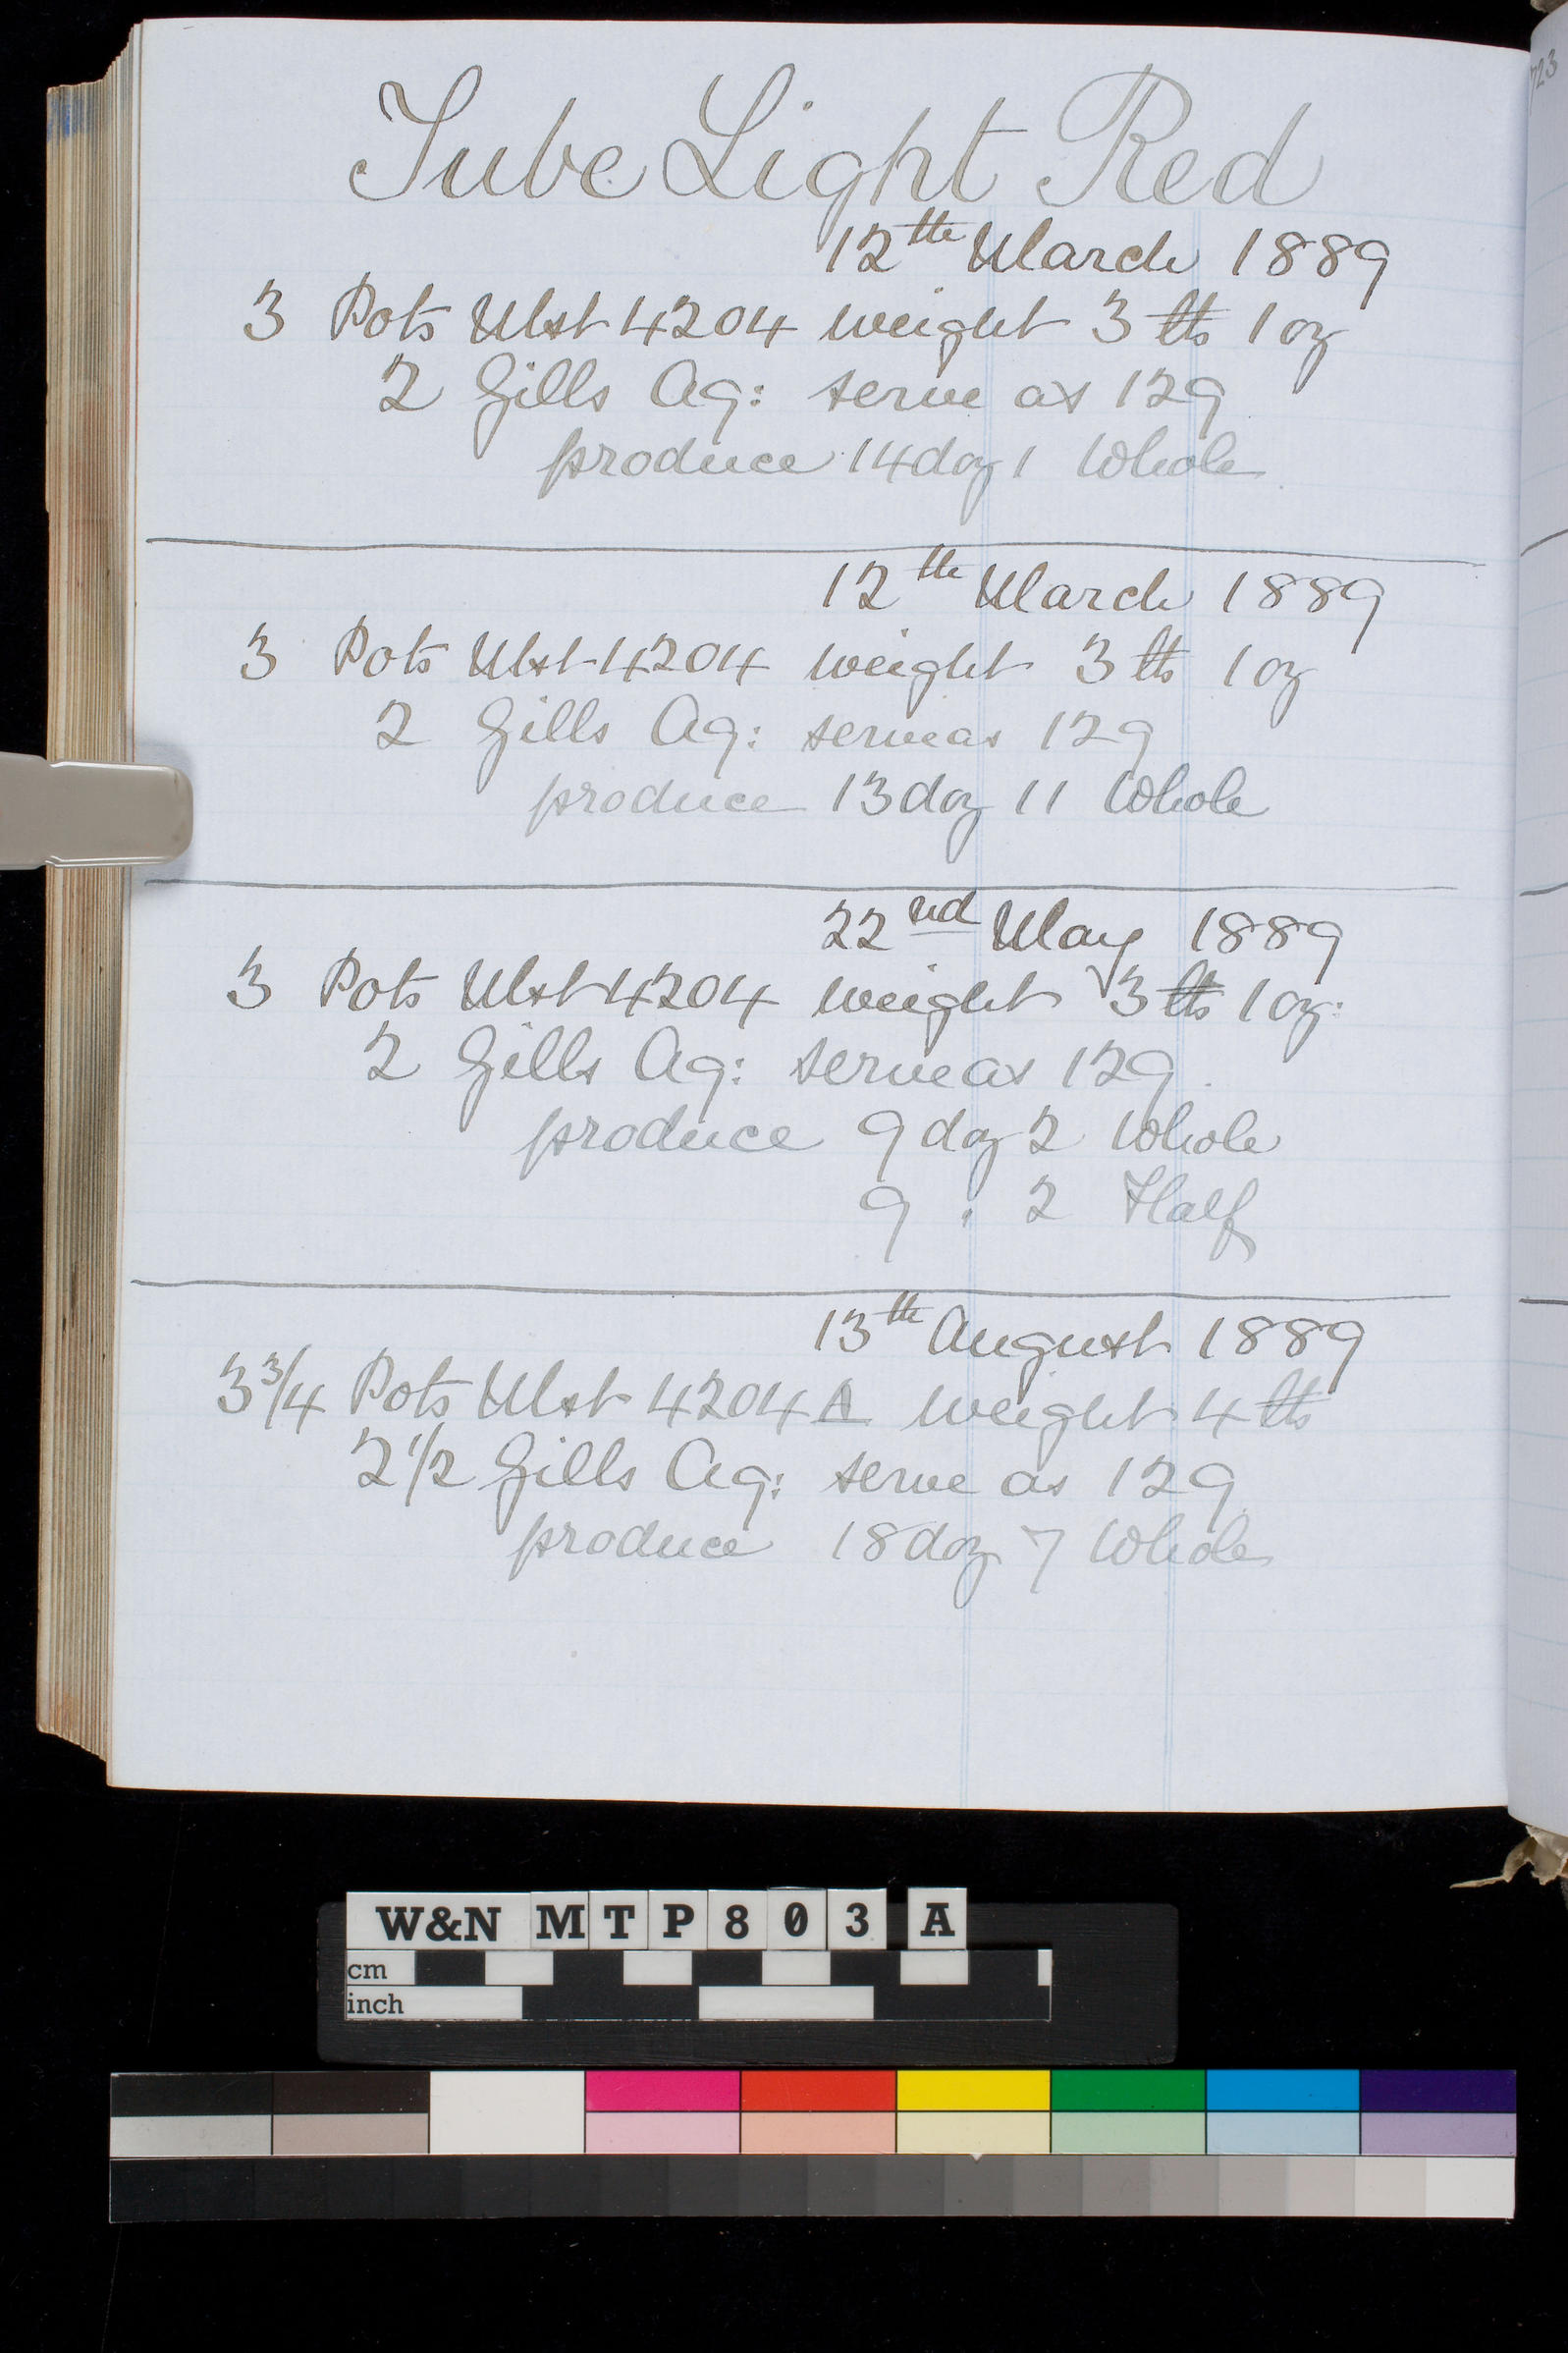 Tube Light Red
12th March 1889
3 Pots Mst 4204 weight 3 lbs 1 oz
2 Gills Aq: serve as 129
produce 14 doz 1 Whole
12th March 1889
3 Pots Mst 4204 weight 3 lbs 1 oz
2 Gills Aq: serve as 129
produce 13 doz 11 Whole
22nd May 1889
3 Pots Mst 4204 weight 3 lbs 1 oz:
2 Gills Aq: serve as 129
produce 9 doz 2 Whole
9 : 2 Half
13th August 1889
3 3/4 Pots Mst 4204 A weight 4 lbs
2 1/2 Gills Aq: serve as 129
produce 18 doz 7 Whole
W&N MTP803 A
cm
inch